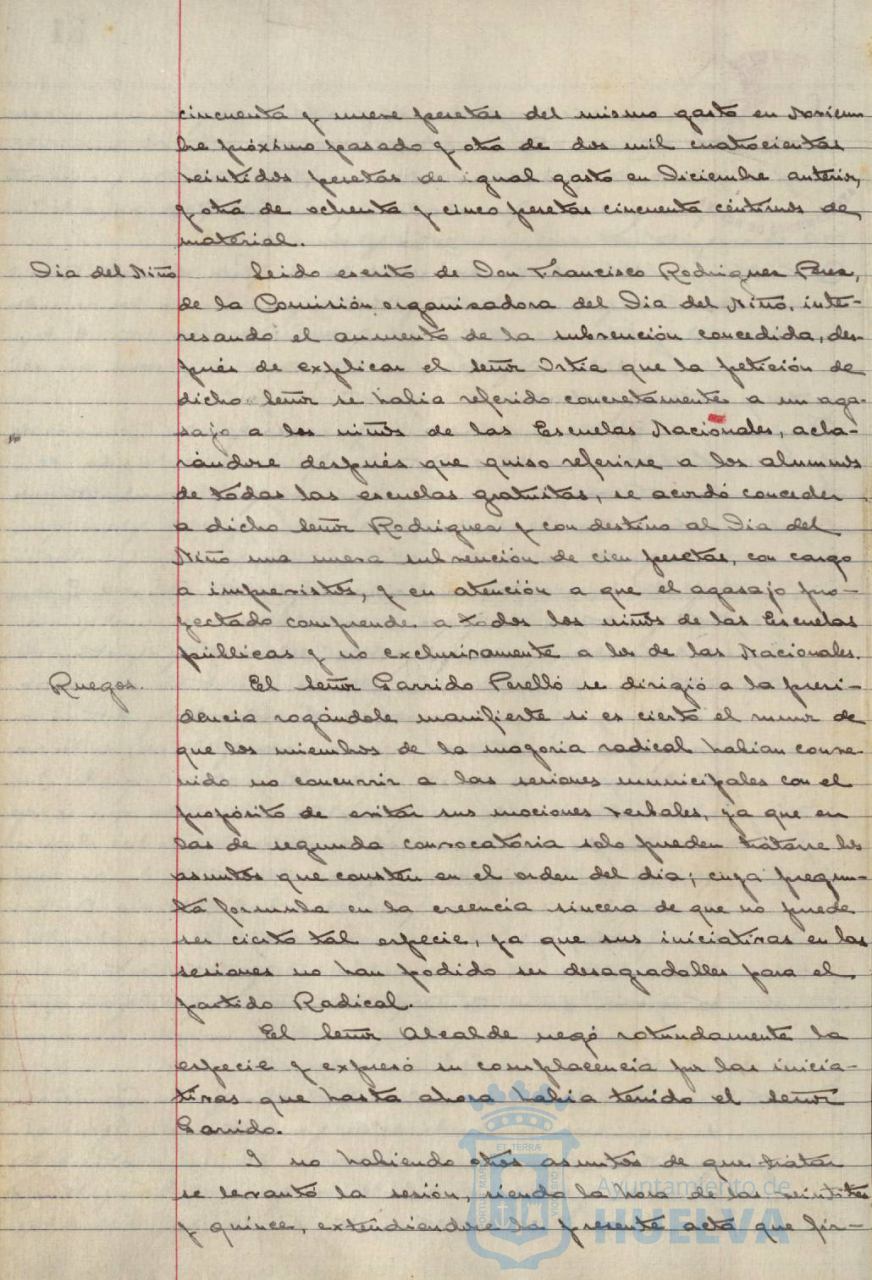 cincuenta y nueve pesetas del mismo gasto en Noviem
bre próximo pasado y otra de dos mil cuatrocientas
veintidos pesetas de igual gasto en Diciembre anterior,
y otra de ochenta y cinco pesetas cincuenta céntimos de
material.
Dia del Niño Leido escrito de Don Francisco Rodriguez Perez,
de la Comisión organizadora del Dia del Niño, inte-
resando el aumento de la subvención concedida, des-
pués de explicar el señor Ortia que la petición de
dicho señor se habia referido concretamente a un aga-
sajo a los niños de las Escuelas Nacionales, acla-
rándose después que quiso referirse a los alumnos
de todas las escuelas gratuitas, se acordó conceder
a dicho señor Rodriguez y con destino al Dia del
Niño una nueva subvención de cien pesetas, con cargo
a imprevistos, y en atención a que el agasajo pro-
yectado comprende a todos los niños de las Escuelas
públicas y no exclusivamente a los de las Nacionales.
Ruegos. El señor Garrido Perelló se dirigió a la presi-
dencia rogándole manifieste si es cierto el rumor de
que los miembros de la mayoria radical habian conve-
nido no concurrir a las sesiones municipales con el
propósito de evitar sus mociones verbales, ya que en
las de segunda convocatoria solo pueden tratarse los
asuntos que consten en el orden del dia; cuya pregun-
ta formula en la creencia sincera de que no puede
ser cierto tal especie, ya que sus iniciativas en las
sesiones no han podido ser desagradables para el
partido Radical.
El señor Alcalde negó rotundamente la
especie y expresó su complacencia por las inicia-
tivas que hasta ahora habia tenido el señor
Garrido.
Y no habiendo otros asuntos de que tratar
se levantó la sesión, siendo la hora de las veintitres
y quince, extendiendose la presente acta que fir-
Ayuntamiento de
HUELVA